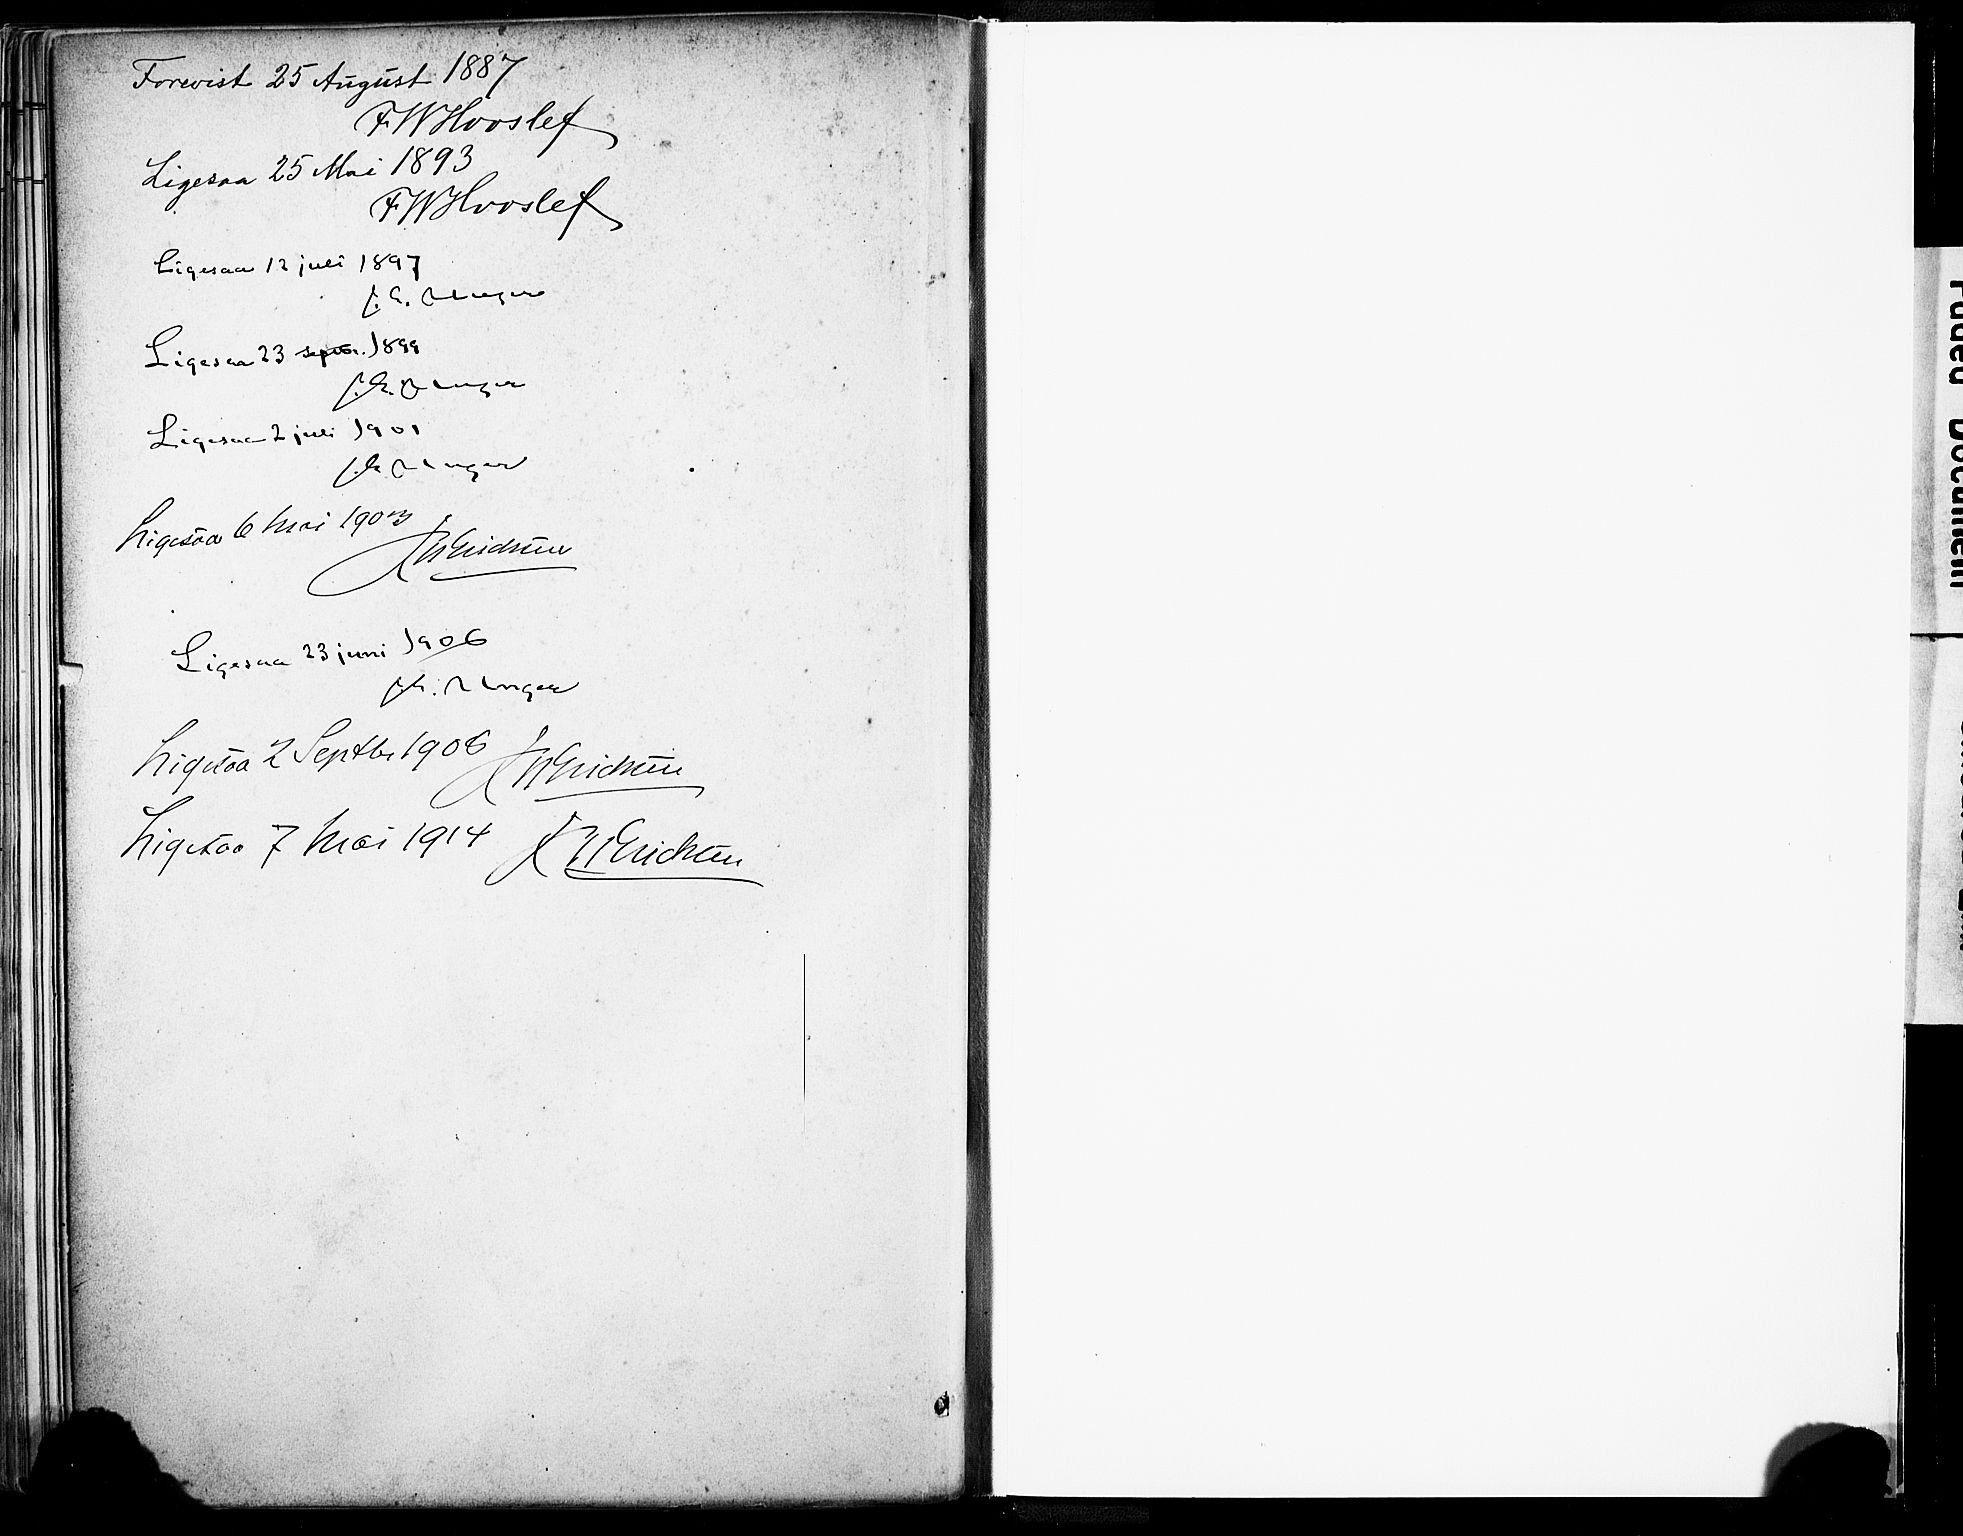 Forevist 25 August 1887
FWHvoslef
Ligesaa 25 Mai 1893
FWHvoslef
Ligesaa 12 juli 1897
J. C. Unger
Ligesaa 23 septbr. 1899
J. C. Unger
Ligesaa 2 juli 1901
J. C. Unger
Ligesaa 6 Mai 1903
Erichsen
Ligesaa 23 juni 1906
J. C. Unger
Ligesaa 2 Septbr 1906 Erichsen
Ligesaa 7 Mai 1914 Erichsen
Faded Document